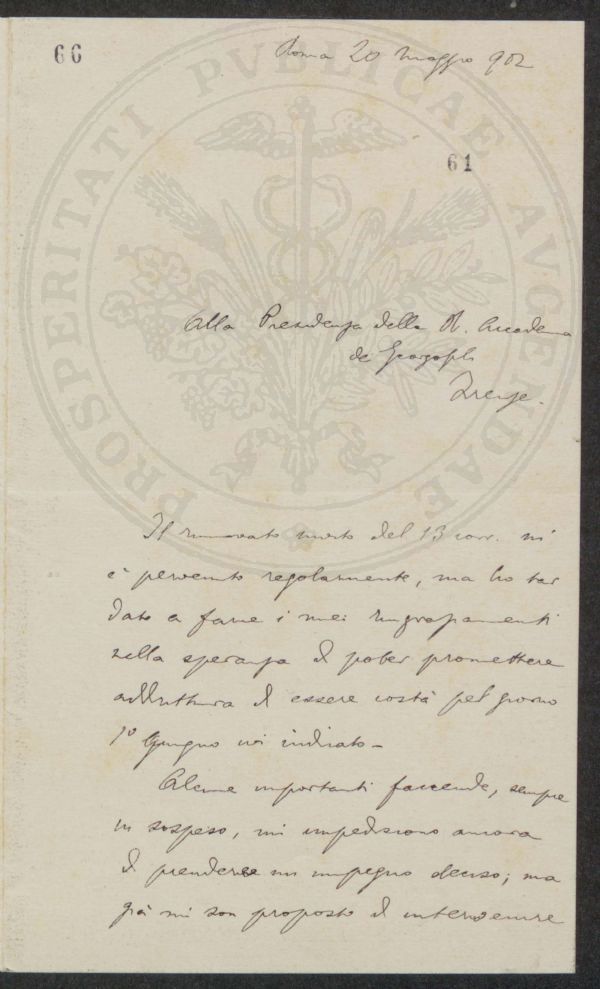 66
Roma 20 maggio 902
61
PROSPERITATI PVBLICAE AVGENDAE
Alla Presidenza della R. Accademia
dei Georgofili
Firenze.
Il rinnovato invito del 13 corr. mi
è pervenuto regolarmente, ma ho tar
dato a farne i miei ringraziamenti
nella speranza di poter promettere
addirittura di essere costà pel giorno
1º Giugno ivi indicato -
Alcune importanti faccende, sempre
in sospeso, mi impediscono ancora
di prendere un impegno deciso; ma
già mi son proposto di intervenire